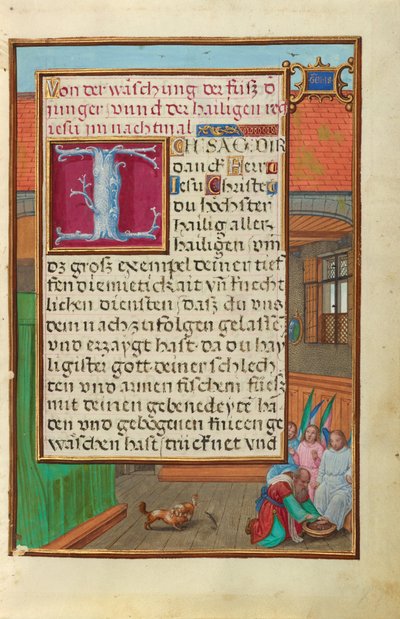 Von der wäschung der füsz d
iunger vund der hailigen reg
iesu im nachtmal
ICH SAG DIR
danck Herr
Iesu Christe
du höchster
hailig aller
hailigen vm
dz grosz exempel deiner tief
fen diemietickait vn̄ knecht
lichen diensten dasz du vns
dem nachzufolgen gelassē
vnd erzaygt hast da du hay
ligister gott deiner schlech
ten vnd armen fischern fiesz
mit deinen gebenedeytē hā
den vnd gebogenen knieen ge
waschen hast trücknet vnd